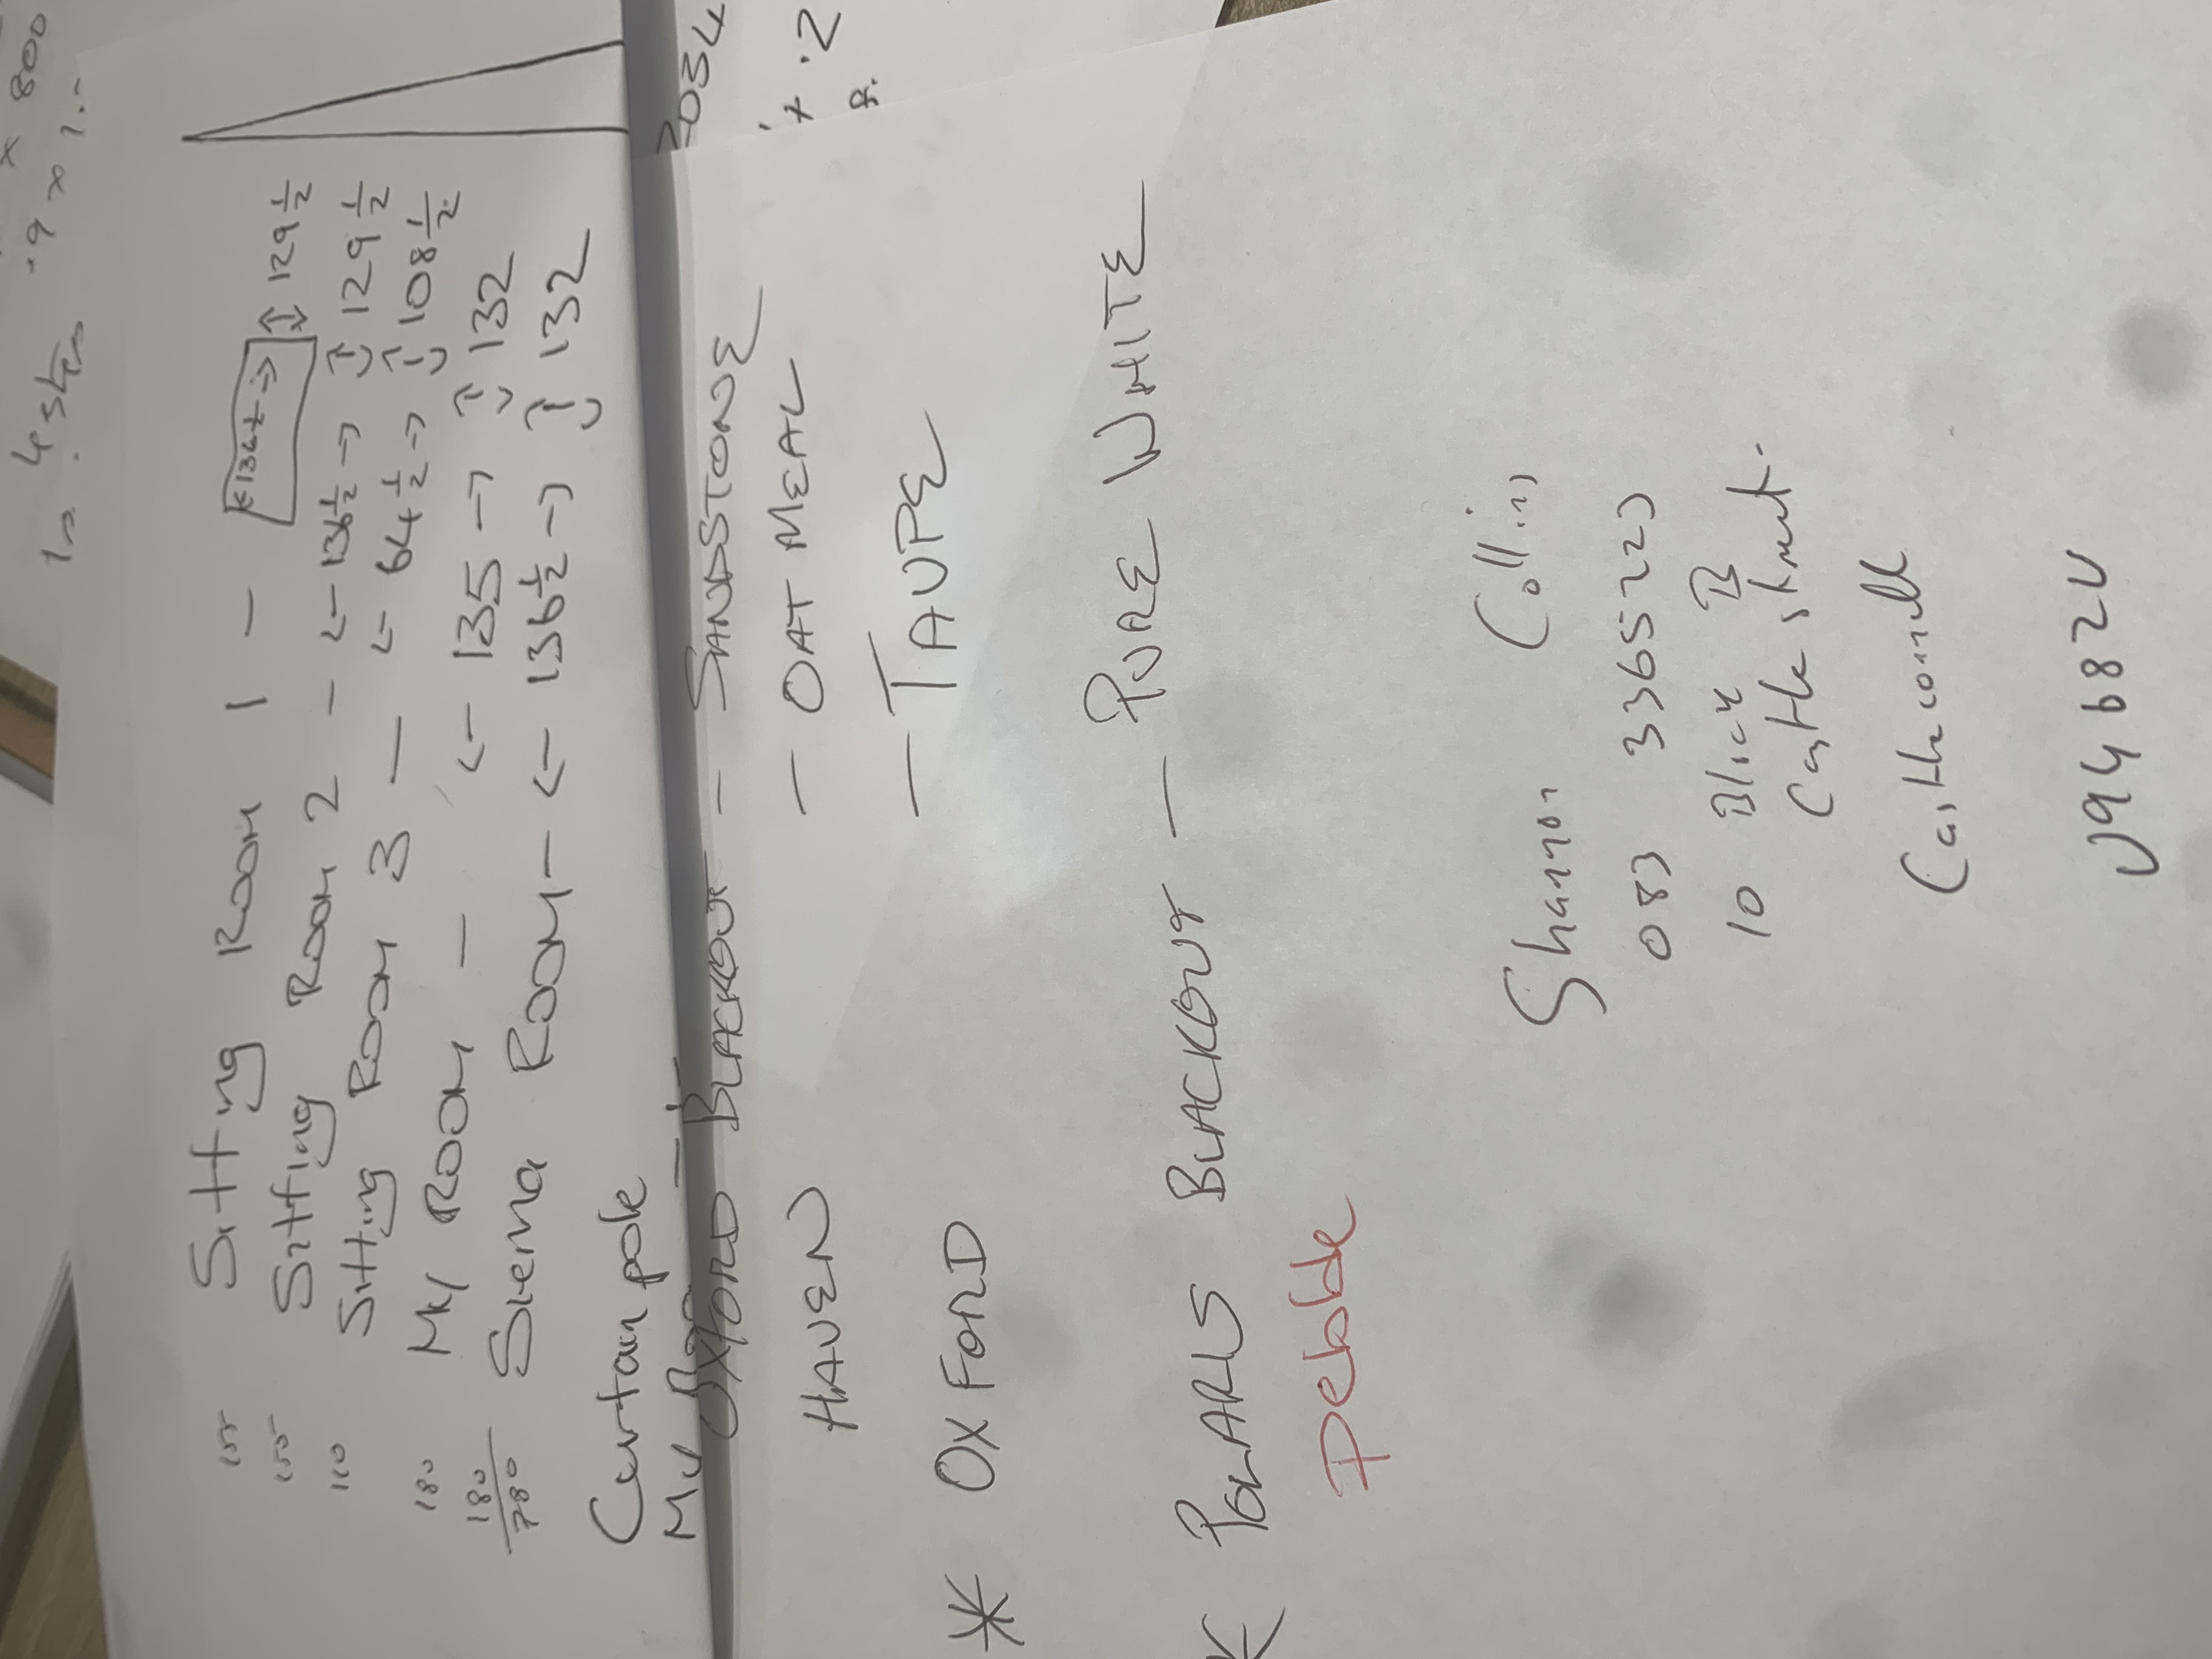 155 Sitting Room 1 - ←136½→ 129½
155 Sitting Room 2 - ←136½→ 129½
110 Sitting Room 3 - ←64½→ 108½
180 My Room - ←135→ 132
180 Sienna Room - ←136½→ 132
780
Curtain pole
My
OXFORD BLACKOUT - SANDSTONE
HAVEN - OATMEAL
* OXFORD - TAUPE
* POLARIS BLACKOUT - PURE WHITE
Pebble
Shannon Collins
083 3365223
10 Block B
Castle street.
Castleconnell
V94 682V
2034
x 800
.9 x 1.